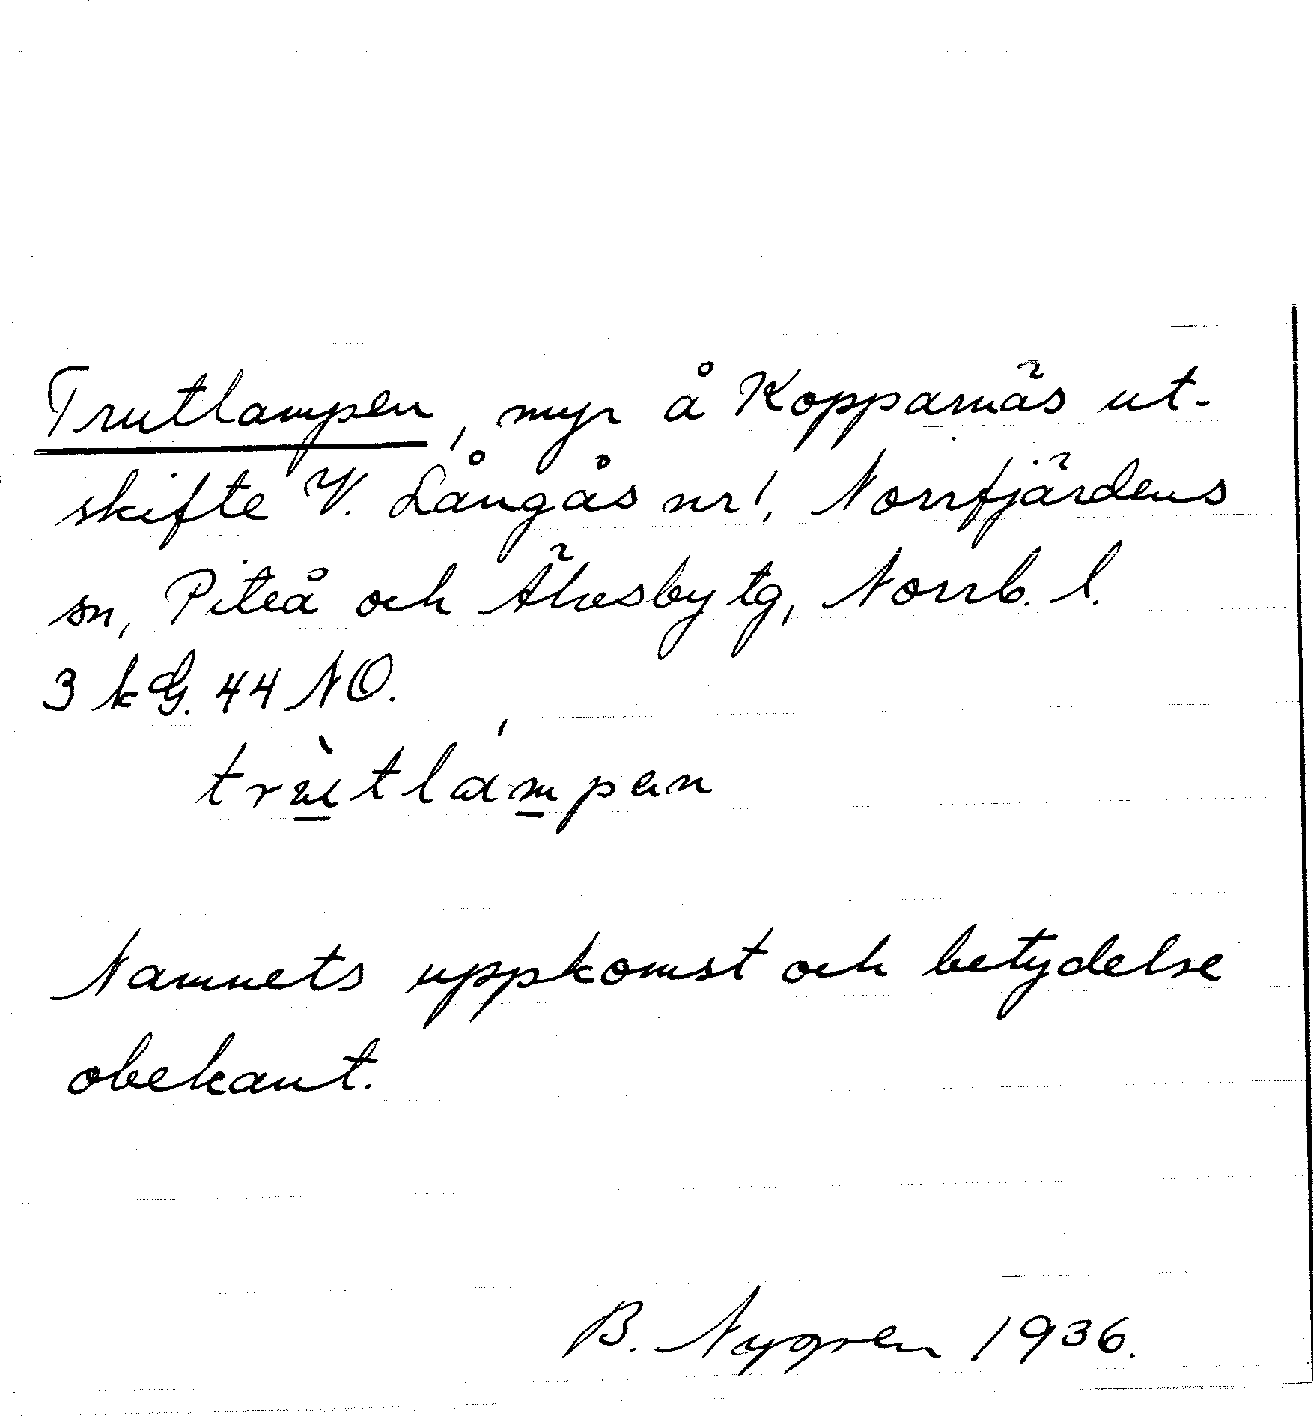 Trutlampen, myr å Kopparnäs ut-
skifte V. Långås nr 1, Norrfjärdens
sn, Piteå och Älvsby tg, Norrb. l.
3 k G. 44 NO.
trùtlámpen
Namnets uppkomst och betydelse
obekant.
B. Nygren 1936.